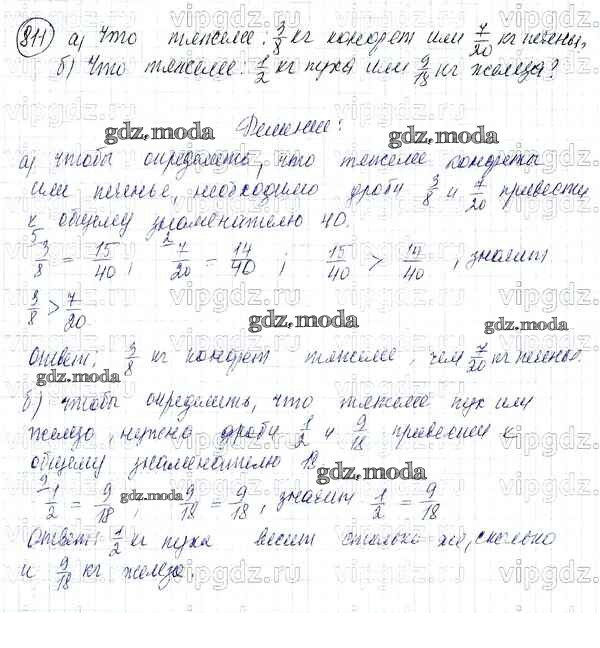 811 а) Что тяжелее: 3/8 кг конфет или 7/20 кг печенья,
б) Что тяжелее: 1/2 кг пуха или 9/18 кг железа?
Решение:
gdz.moda
а) чтобы определить, что тяжелее конфеты
или печенье, необходимо дроби 3/8 и 7/20 привести
к общему знаменателю 40.
5 3/8 = 15/40; 2 7/20 = 14/40; 15/40 > 14/40, значит
3/8 > 7/20.
gdz.moda
Ответ: 3/8 кг конфет тяжелее, чем 7/20 кг печенья.
gdz.moda
б) чтобы определить, что тяжелее пух или
железо, нужно дроби 1/2 и 9/18 привести к
общему знаменателю 18
gdz.moda
9 1/2 = 9/18, 9/18 = 9/18, значит 1/2 = 9/18
gdz.moda
Ответ: 1/2 кг пуха весит столько же, сколько
и 9/18 кг железа.
vipgdz.ru